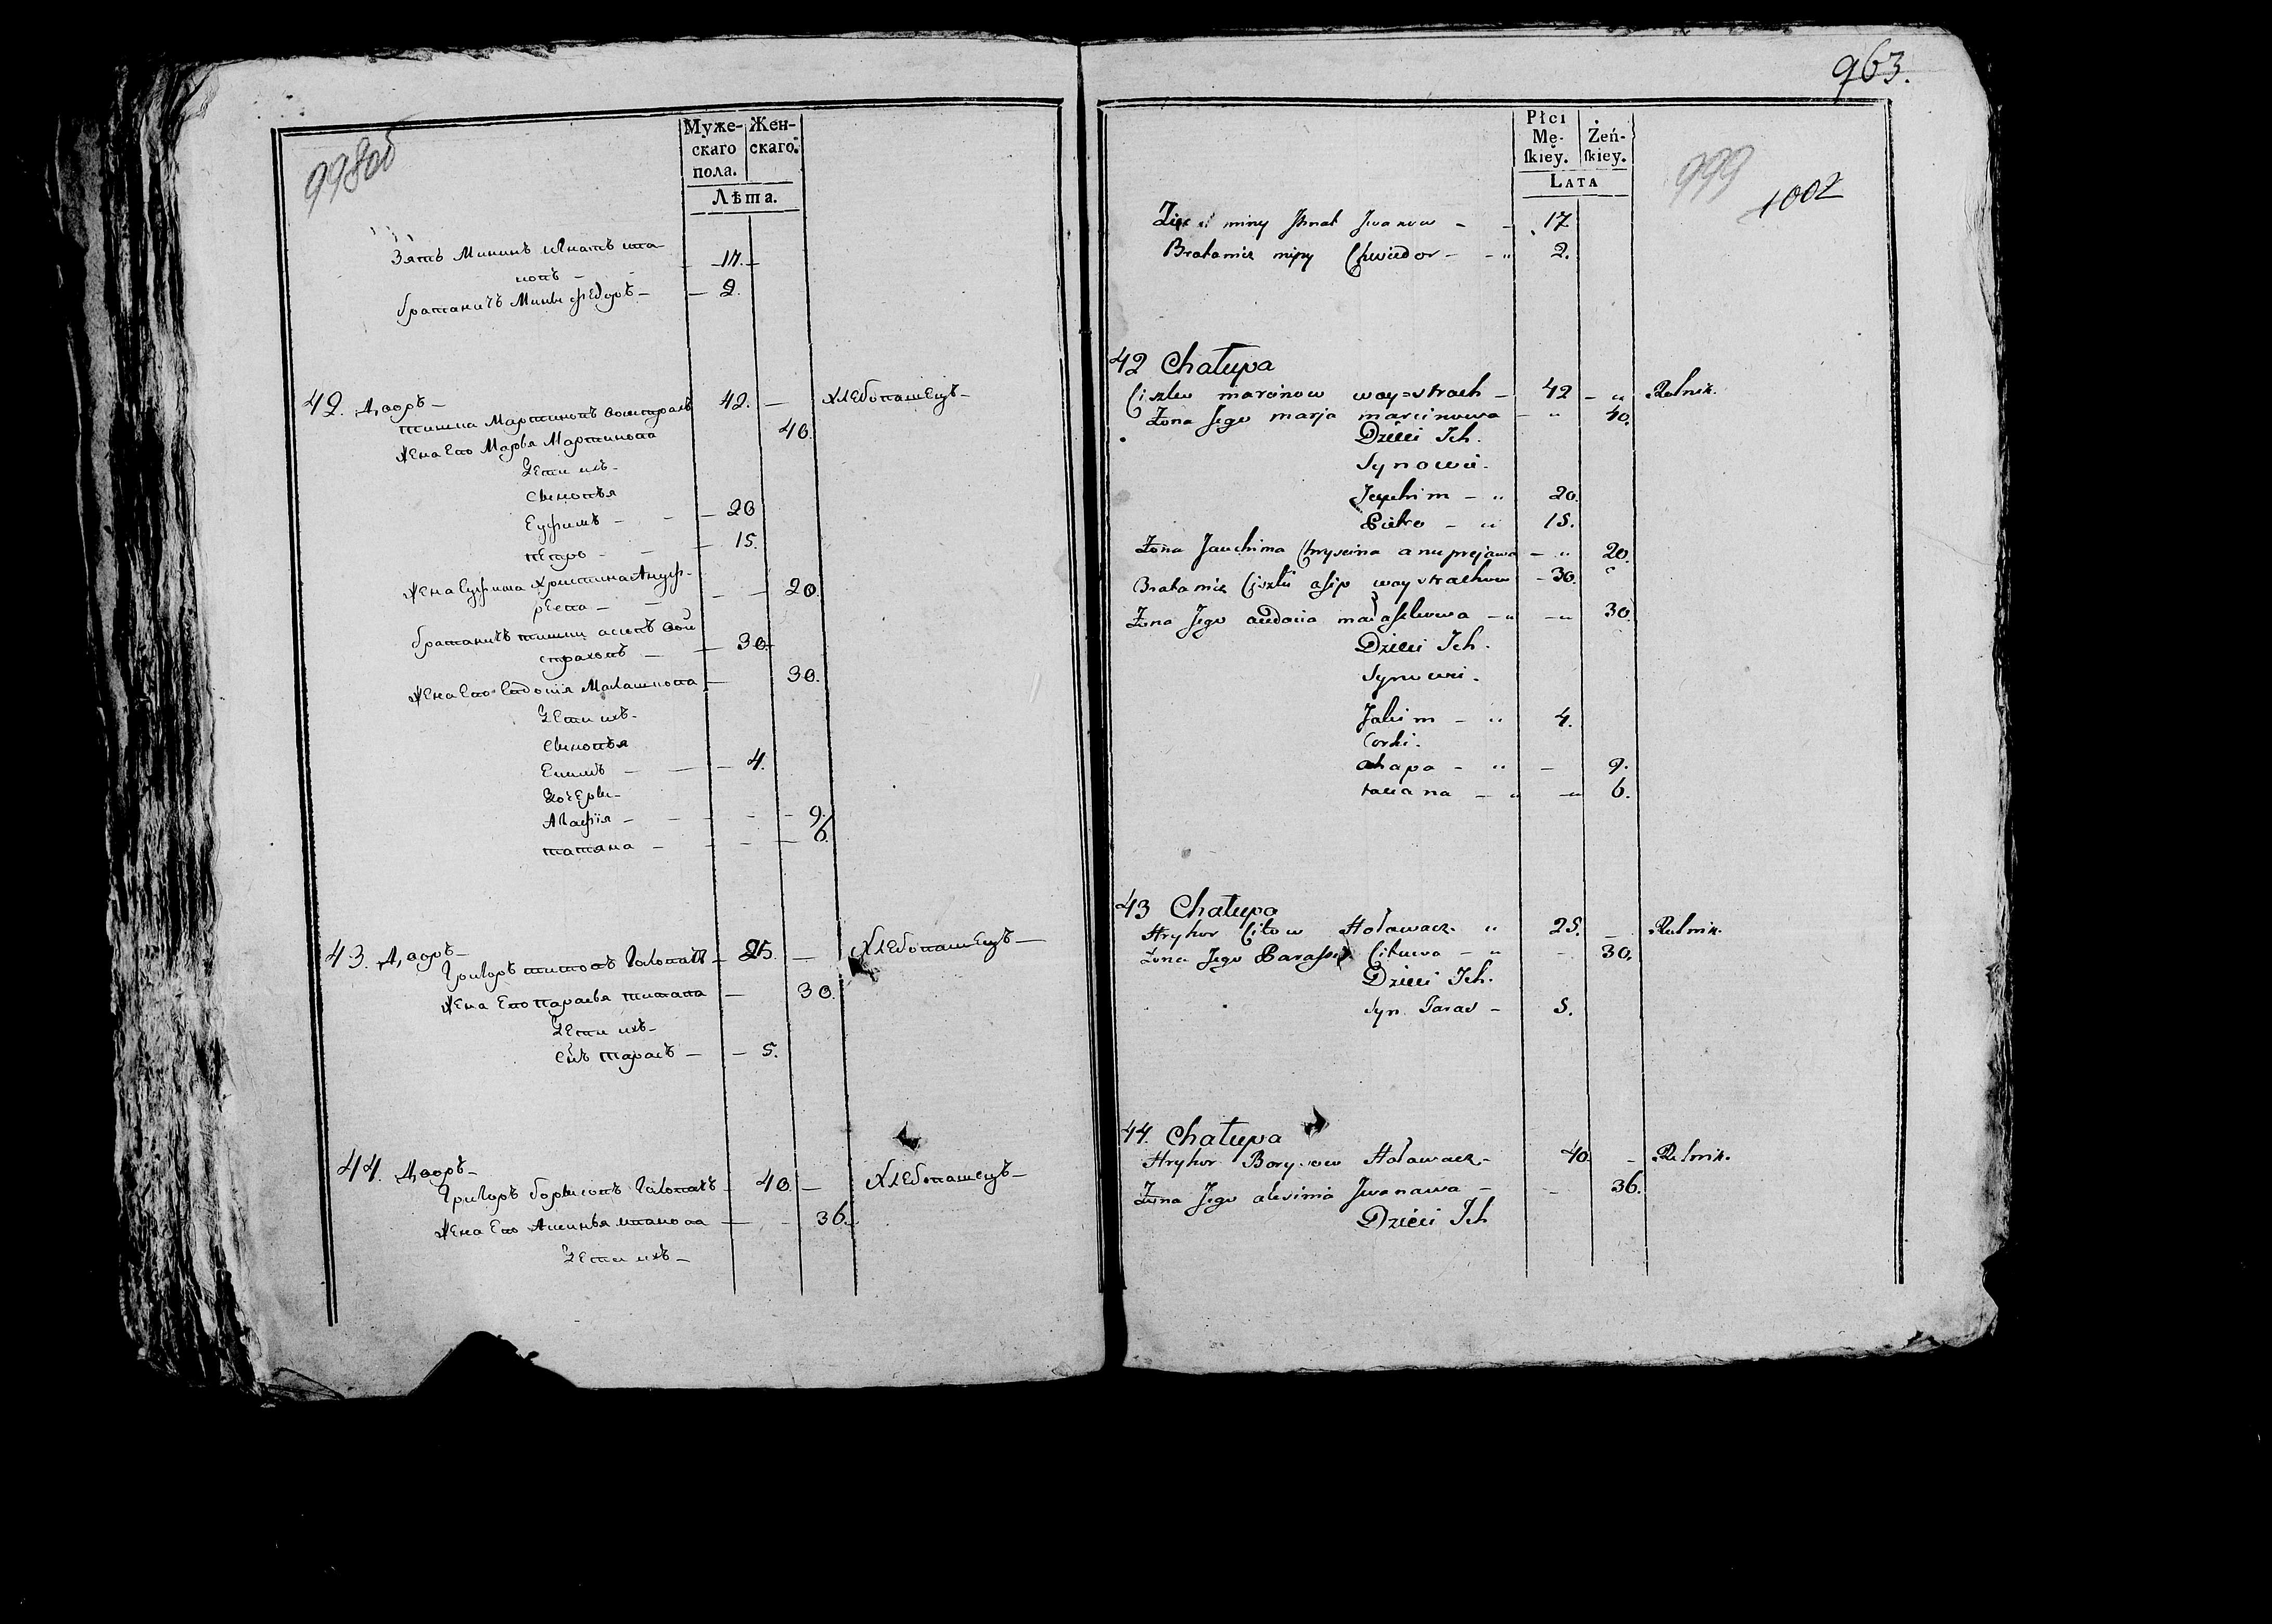 998об
Муже-
скаго
пола.
Жен-
скаго.
Лѣта.
Зять Мининъ Игнатъ ива
новъ — 17. —
братаничъ Мины Федоръ — 2.
42. Дворъ —
тишка Мартиновъ войстрахъ 42. — хлебопашецъ —
жена Ево Марья Мартинова 40.
Дети ихъ —
сыновья
Еуфимъ — — 20
петро — — 15.
жена Еуфима христина Ануф-
рЕева — — 20.
братаничъ тишки асипъ вой
страховъ — 30.
жена Ево Евдокия Малашкова — 30.
Дети ихъ —
сыновья
Екимъ — — 4.
Дочери —
Агафія — — 9.
татяна — — 6.
43. Дворъ —
Григоръ титовъ Головачъ — 25. — хлебопашецъ —
жена Ево парасья титова — 30.
Дети ихъ —
сынъ тарасъ — 5.
44. Дворъ —
Григоръ борисовъ Головачъ — 40. — хлебопашецъ —
жена Ево Аксинья иванова — 36.
Дети ихъ —
963.
Płci
Mę-
ſkiey.
Żeń-
ſkiey.
LATA
999
1002
Zięć miny Ihnat Iwanow - - 17
Bratanicz miny Chwiedor - - " 2.
42 Chałupa
Ciszko marcinow woy=strach - 42 - " Rolnik.
Żona Jego marja marcinowa - " 40.
Dzieci Ich.
Synowie.
Jauchim - " 20.
Pietro - " 15.
Żona Jauchima Chryscina anuprejawa - " 20.
Bratanicz Ciszki asip woystrachow - 30. "
Żona Jego audocia malaszkowa - " - " 30.
Dzieci Ich.
Synowie.
Jakim - " 4.
Corki.
ahapa - " - 9.
taciana - " - " 6.
43 Chałupa
Hryhor Citow Hoławacz " 25. - Rolnik.
Żona Jego Parasia Citowa - " - 30.
Dzieci Ich.
Syn Taras - 5.
44. Chałupa
Hryhor Borysow Hoławacz - 40. - Rolnik.
Żona Jego alesinia Iwanawa - - 36.
Dzieci Ich